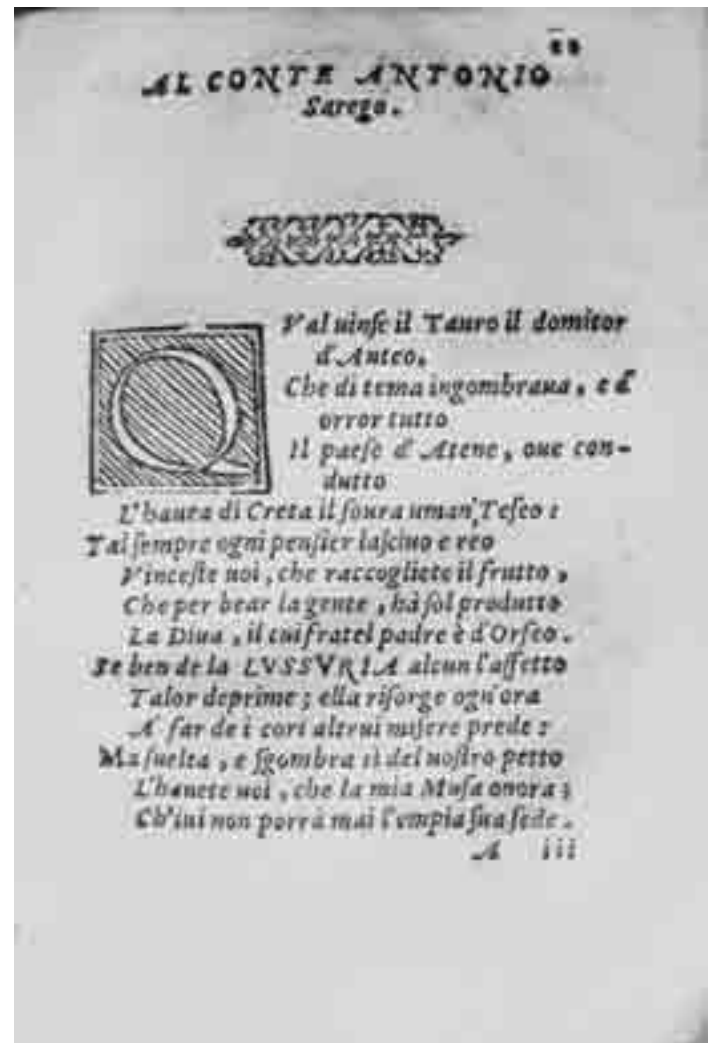 AL CONTE ANTONIO
Sarego.
QVal uinse il Tauro il domitor
d'Anteo,
Che di tema ingombraua, e d'
orror tutto
Il paese d'Atene, oue con-
dutto
L'hauea di Creta il soura uman' Teseo:
Tal sempre ogni pensier lasciuo e reo
Vinceste uoi, che raccogliete il frutto,
Che per bear la gente, hà sol produtto
La Diua, il cui fratel padre è d'Orfeo.
Se ben de la LVSSVRIA alcun l'affetto
Talor deprime; ella risorge ogn'ora
A far de i cori altrui misere prede:
Ma suelta, e sgombra sì del uostro petto
L'hauete uoi, che la mia Musa onora;
Ch'iui non porrà mai l'empia sua sede.
A iii